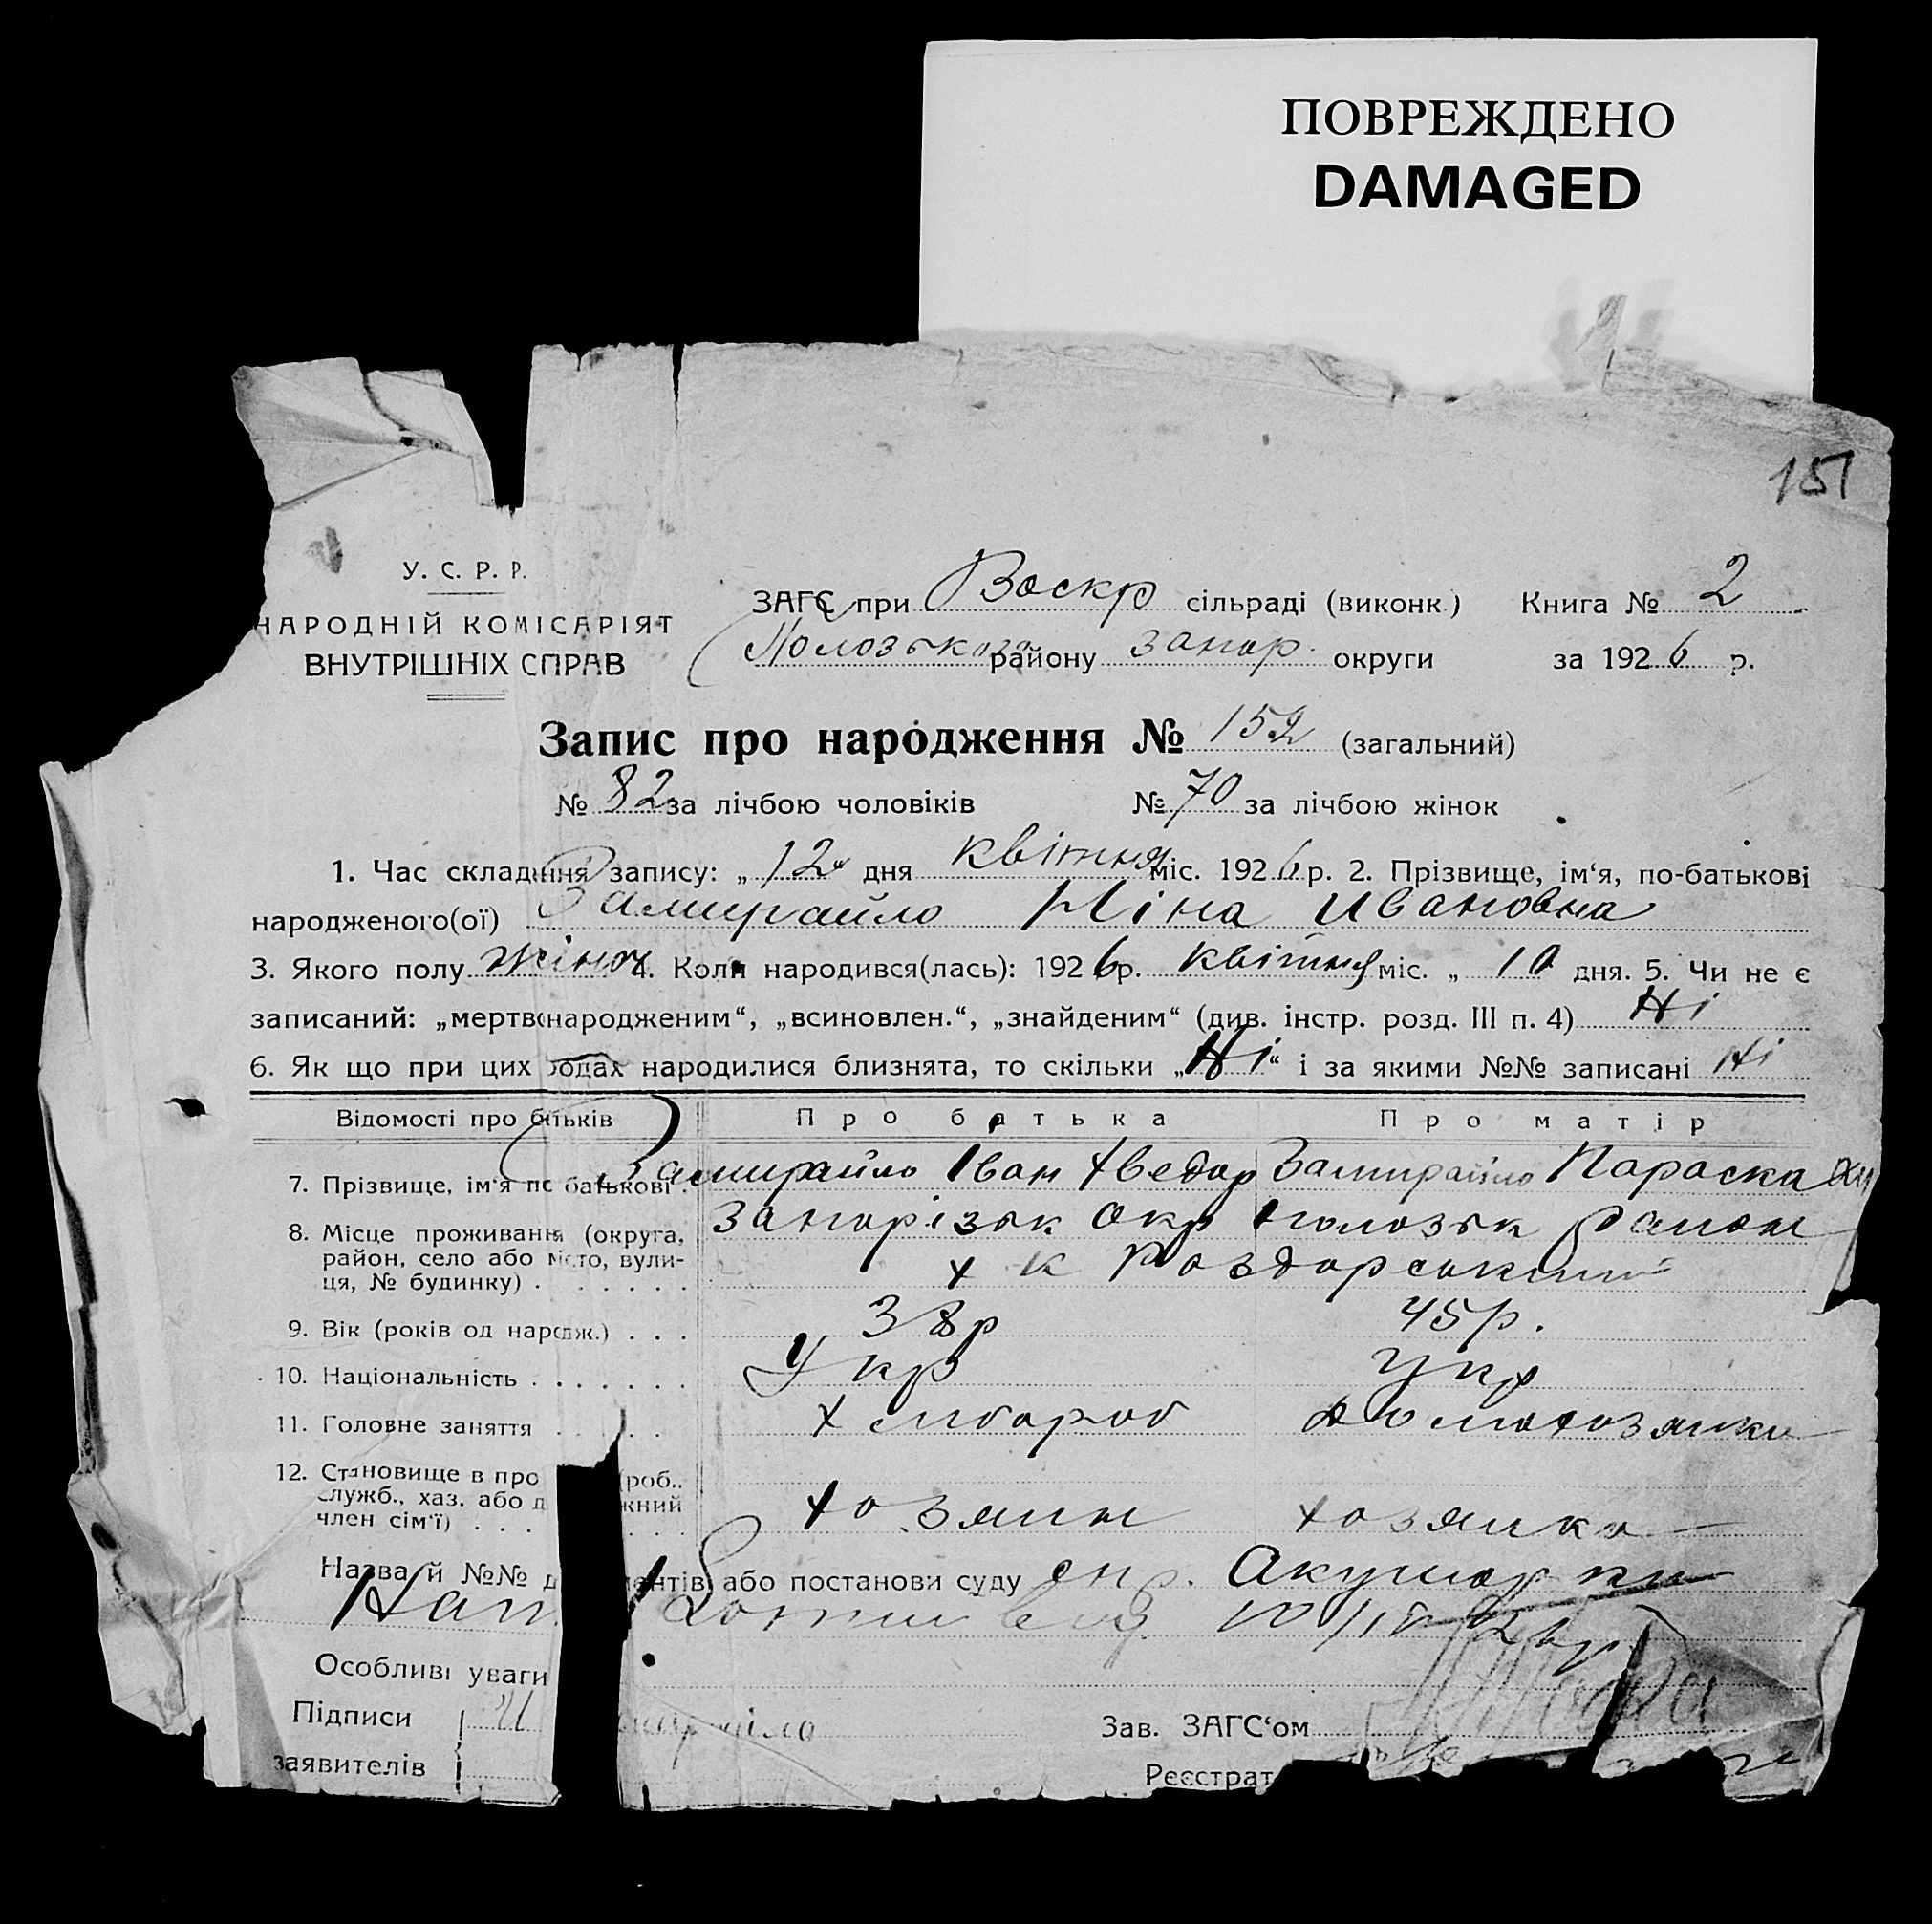 ПОВРЕЖДЕНО
DAMAGED
151
У. С. Р. Р.
НАРОДНІЙ КОМІСАРІЯТ
ВНУТРІШНІХ СПРАВ
ЗАГС при Воскр сільраді (виконк.) Книга № 2
району Запор. округи за 1926 р.
Запис про народження № 152 (загальний)
№ 82 за лічбою чоловіків № 70 за лічбою жінок
1. Час складання запису: „12“ дня квітня міс. 1926 р. 2. Прізвище, ім‘я, по-батькові
народженого(ої) Замирайло Ніна Ивановна
3. Якого полу жіноч 4. Коли народився(лась): 1926 р. квітня міс. „ 10 дня. 5. Чи не є
записаний: „мертвонародженим“, „всиновлен.“, „знайденим“ (див. інстр. розд. III п. 4) Ні
6. Як що при цих родах народилися близнята, то скільки „Ні“ і за якими №№ записані Ні
Відомості про батьків Про батька Про матір
7. Прізвище, ім‘я по батькові. Замирайло Іван Хведор Замирайло Параска
8. Місце проживання (округа, район, село або місто, вулиця, № будинку) Запорізьк Окр Район
х к Роздорський
9. Вік (років од народж.) . . . 38р 45р.
10. Національність . . . . . . . Укр Укр
11. Головне заняття . . . . . Хлібороб Домохозяйка
12. Становище в про (роб.,
служб., хаз. або д жний
член сім‘ї) . . . . . . . Хозяин Хозяйка
Назва й №№ д ментів або постанови суду Акушорки
Особливі уваги
Підписи
заявителів
Зав. ЗАГС‘ом
Реєстрат